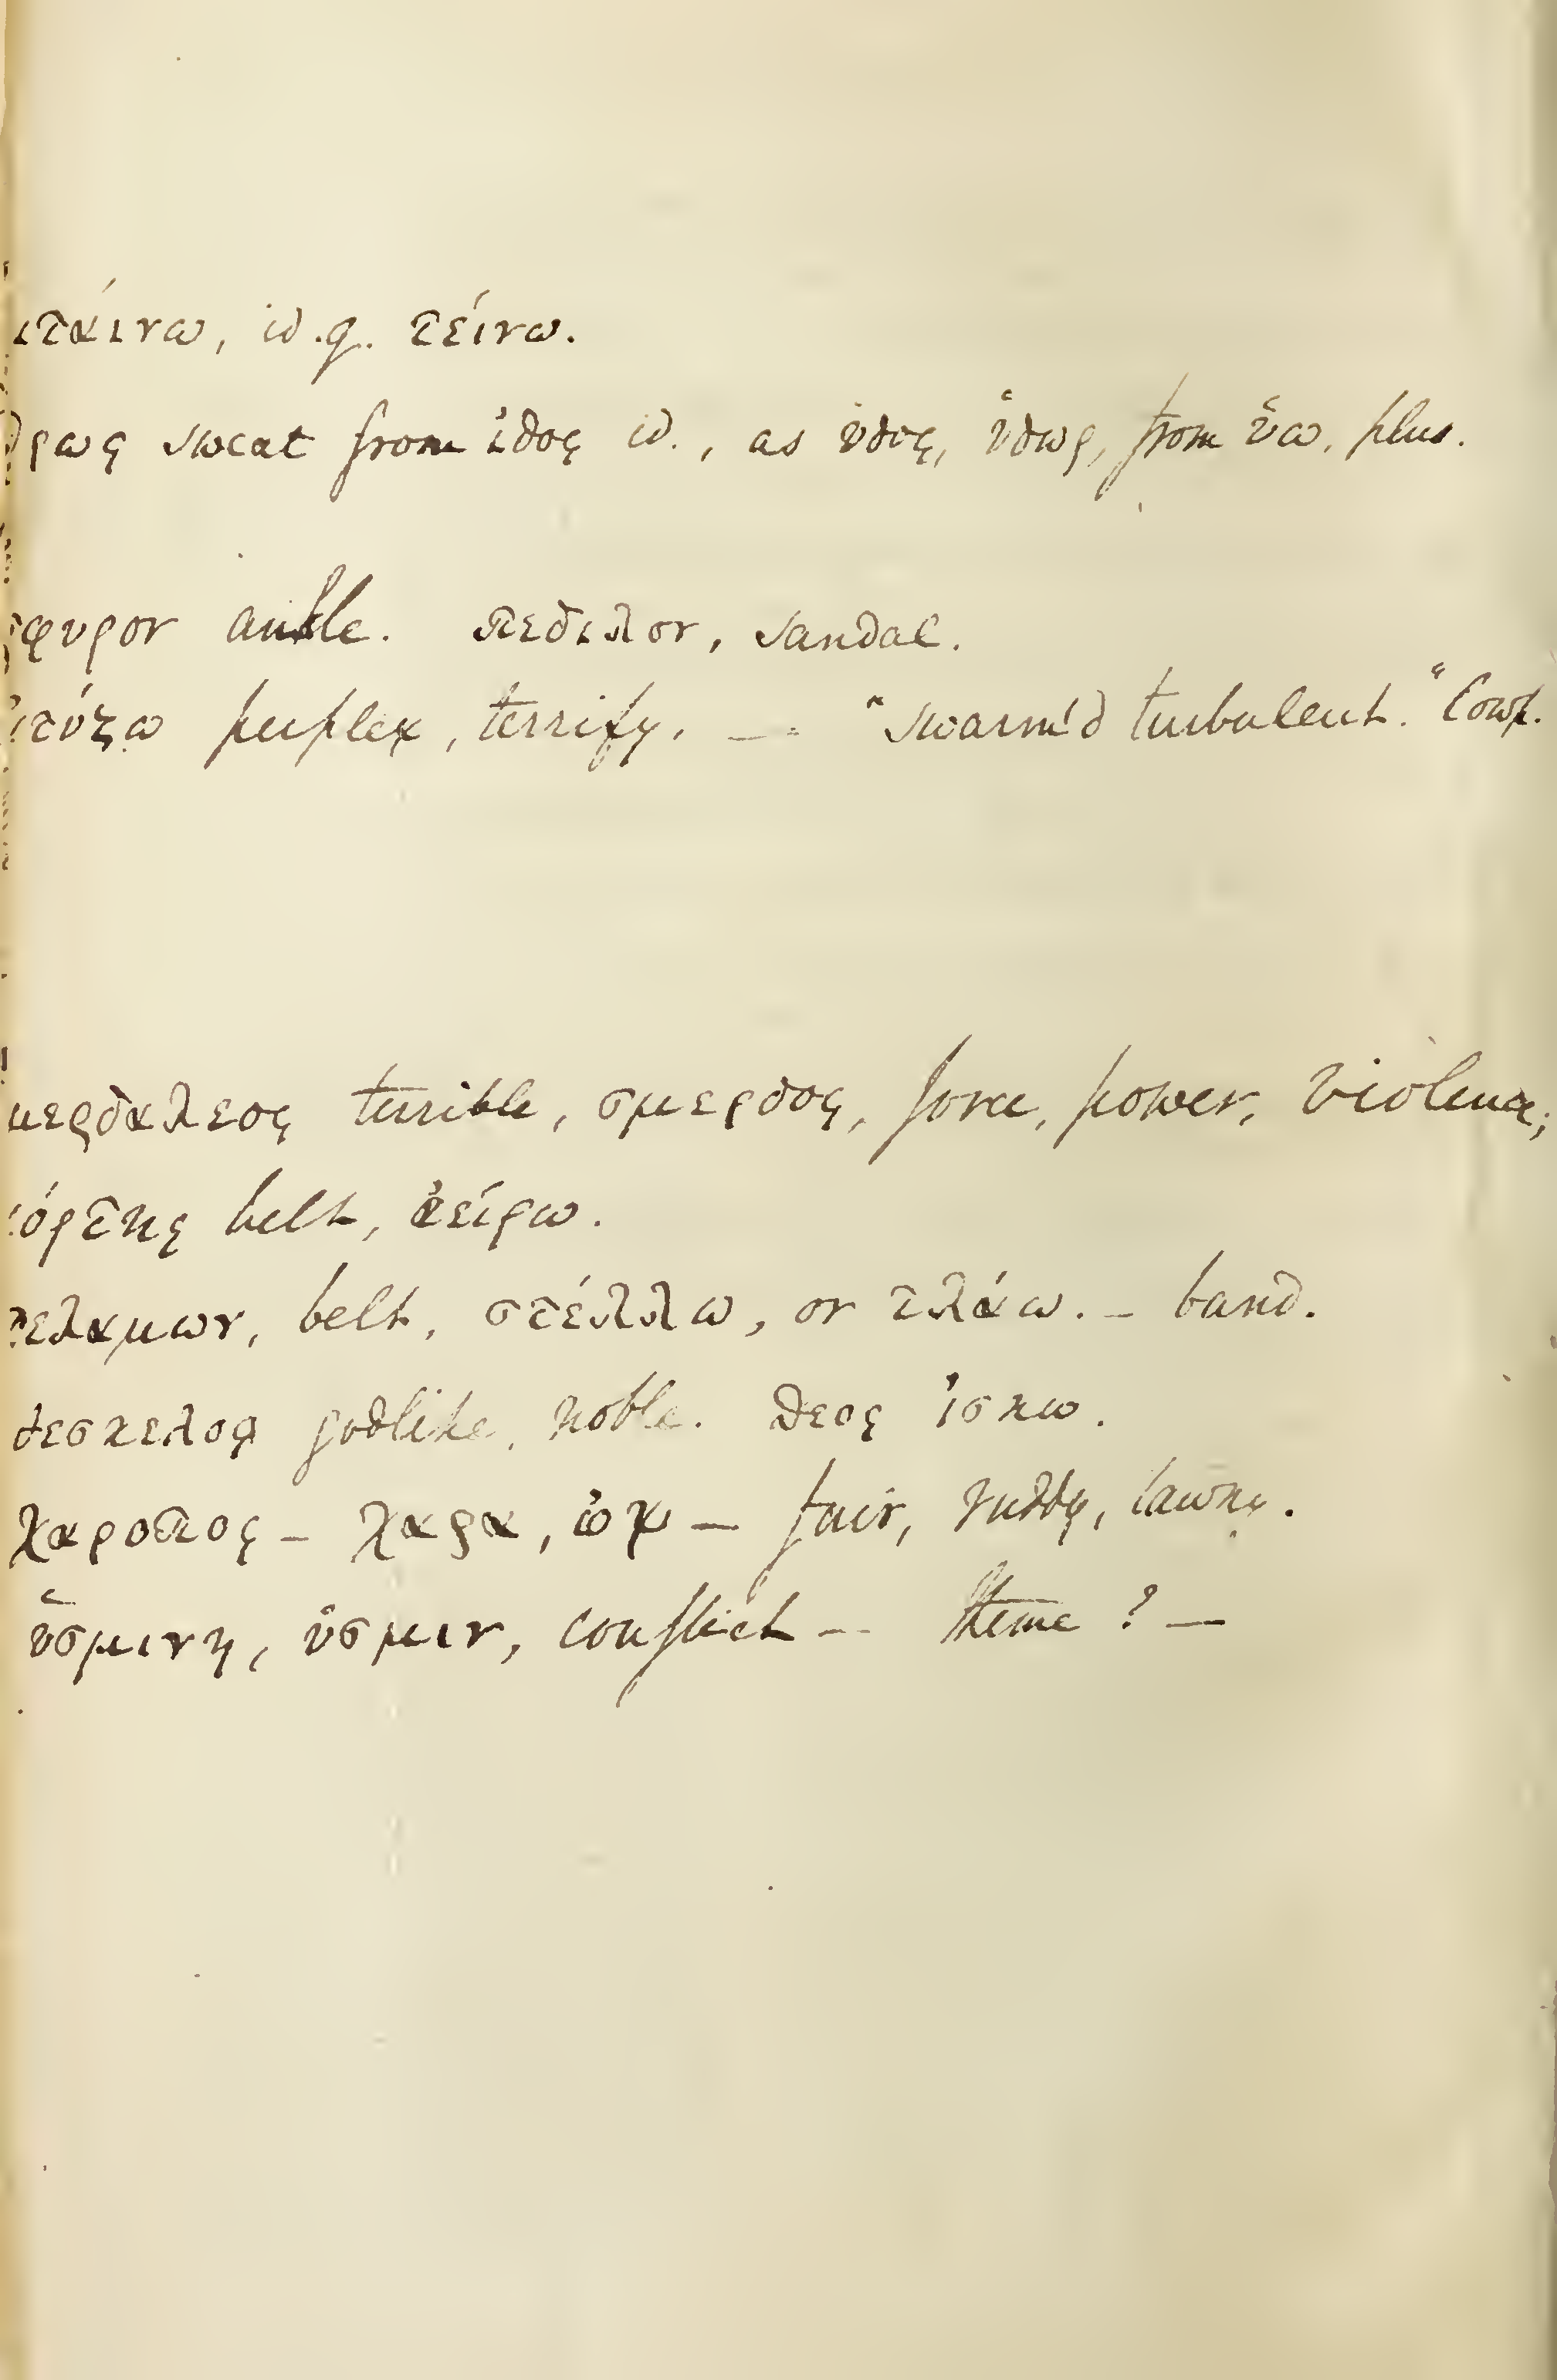 ιτάινω, id. q. τείνω.
δρως sweat from ἰδος id., as ὑδος, ὕδωρ, from ὕω, plus.
φυρον ankle. πεδιλον, sandal.
τύζω perplex, terrify. — "swarm'd turbulent." Cowp.
μερδαλεος terrible, σμερδος, force, power, violence;
όρτης belt, ἀείρω.
τελαμων, belt, στέλλω, or τλάω. — band.
θεσκελος godlike, noble. θεος ἰσκω.
χαροπος — χαρα, ὠψ — fair, ruddy, tawny.
ὑσμινη, ὑσμιν, conflict — theme? —